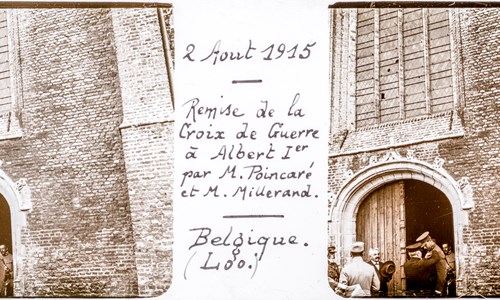 2 Aout 1915
Remise de la
Croix de Guerre
à Albert Ier
par M. Poincaré
et M. Millerand.
Belgique.
(Loo.)